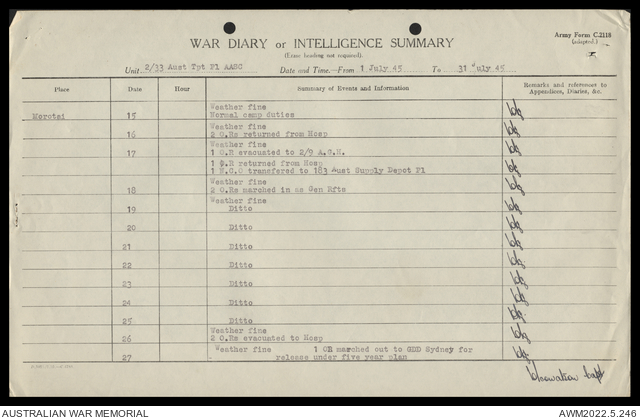 Army Form C.2118
(adapted.)
WAR DIARY or INTELLIGENCE SUMMARY
(Erase heading not required).
Unit 2/33 Aust Tpt Pl AASC Date and Time.—From 1 July 45 To 31 July 45
Place Date Hour Summary of Events and Information Remarks and references to Appendices, Diaries, &c.
Morotai 15 Weather fine
Normal camp duties
16 Weather fine
2 O.Rs returned from Hosp
17 Weather fine
1 O.R evacuated to 2/9 A.G.H.
1 O.R returned from Hosp
1 N.C.O transfered to 183 Aust Supply Depot Pl
18 Weather fine
2 O.Rs marched in as Gen Rfts
19 Weather fine
Ditto
20 Ditto
21 Ditto
22 Ditto
23 Ditto
24 Ditto
25 Ditto
26 Weather fine
2 O.Rs evacuated to Hosp
27 Weather fine 1 OR marched out to GDD Sydney for
release under five year plan
AUSTRALIAN WAR MEMORIAL AWM2022.5.246